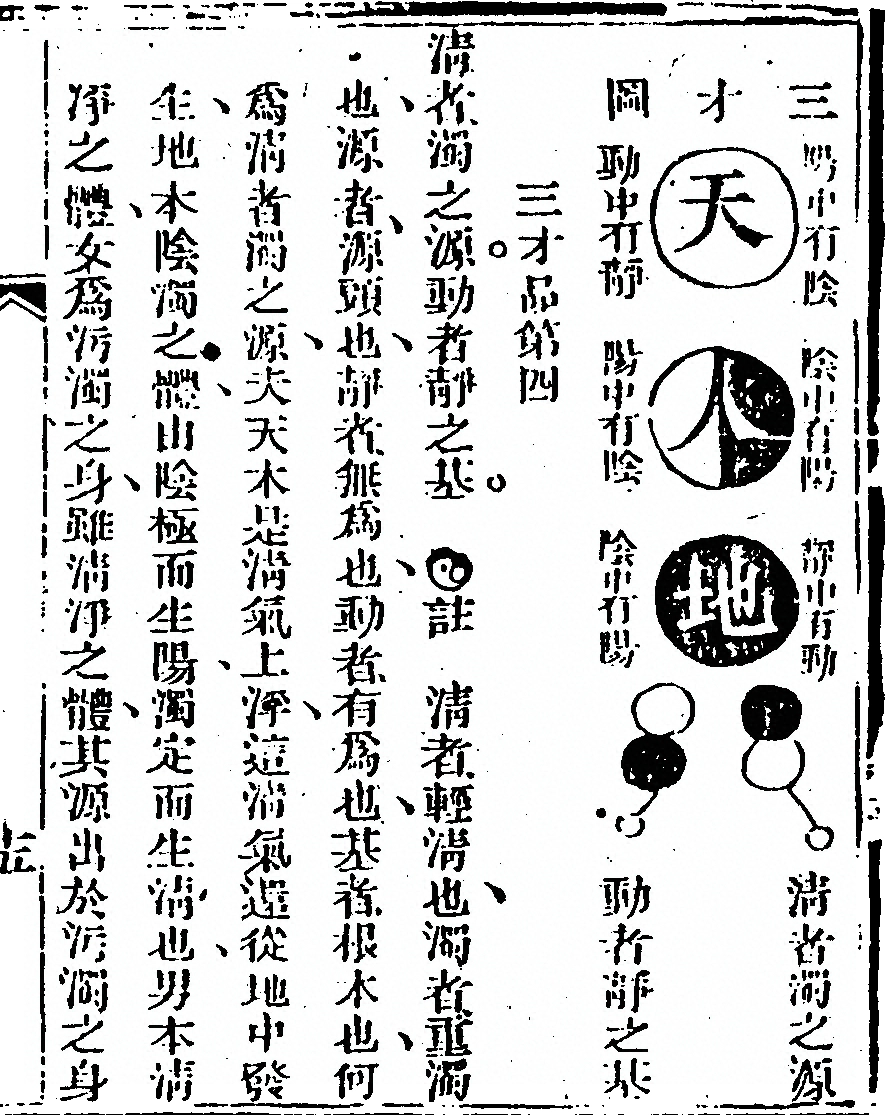 三才圖
陽中有陰
陰中有陽
靜中有動
清者濁之源
天
人
地
動中有靜
陽中有陰
陰中有陽
動者靜之基
三才品第四
清者濁之源動者靜之基 註 清者輕清也濁者重濁
也源者源頭也靜者無為也動者有為也基者根本也何
為清者濁之源夫天本是清氣上浮這清氣還從地中發
生地本陰濁之體由陰極而生陽濁定而生清也男本清
凈之體女為污濁之身雖清凈之體其源出於污濁之身
五